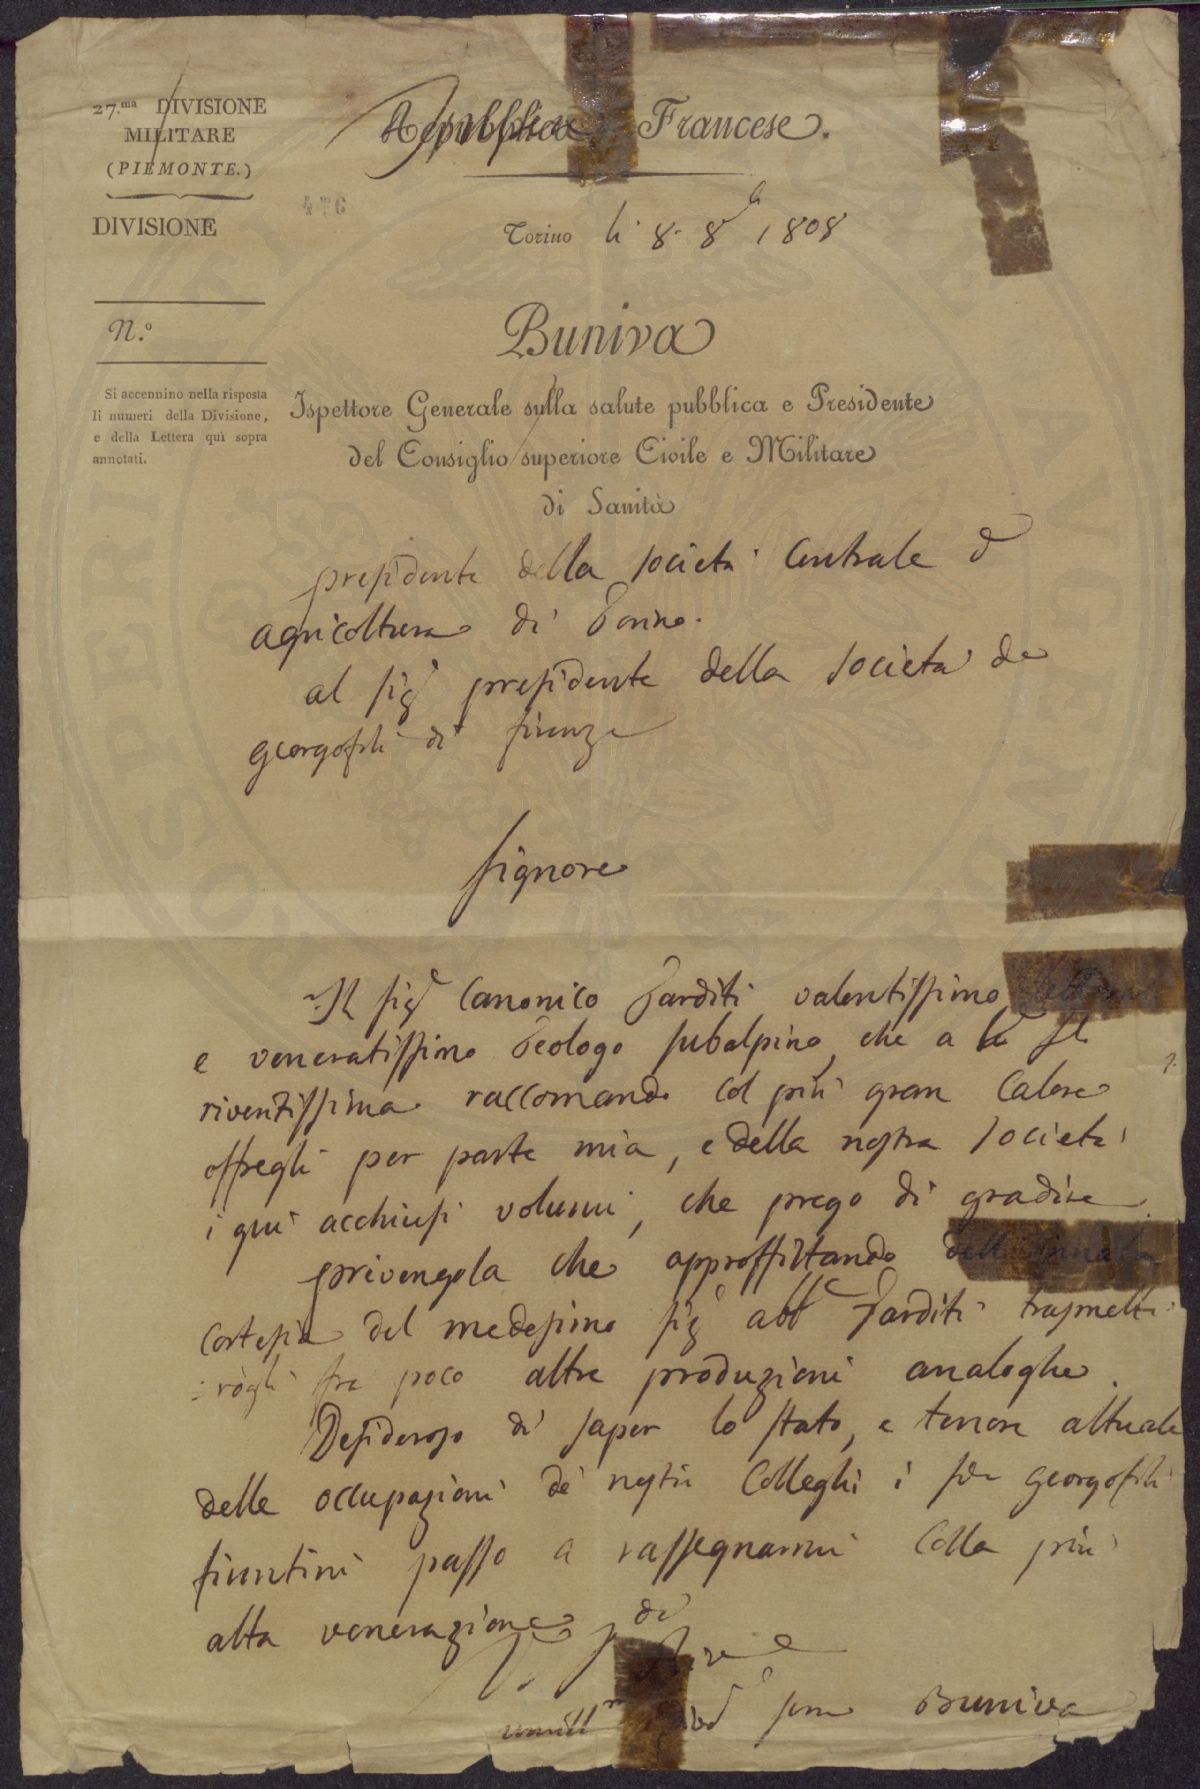 27.ma DIVISIONE
MILITARE
(PIEMONTE.)
DIVISIONE
N.º
Si accennino nella risposta
li numeri della Divisione,
e della Lettera quì sopra
annotati.
Repubblica Francese.
476
Torino li 8. 8b 1808
Buniva
Ispettore Generale sulla salute pubblica e Presidente
del Consiglio superiore Civile e Militare
di Sanità
presidente della società Centrale d
agricoltura di Torino.
al sigr presidente della società de
georgofili di firenze
signore
Il sigr Canonico Tarditi valentissimo
e veneratissimo Teologo subalpino, che a
riventissima raccomando col più gran calore
offregli per parte mia, e della nostra società
i qui acchiusi volumi, che prego di gradire.
privengola che approffittando della innata
cortesia del medesimo sigr abbe Tarditi trasmette
:rògli fra poco altre produzioni analoghe.
Desideroso di saper lo stato, e tenore attuale
delle occupazioni de' nostri Colleghi i georgofili
fiorentini passo a rassegnarmi colla più
alta venerazione
di
umill serv Buniva